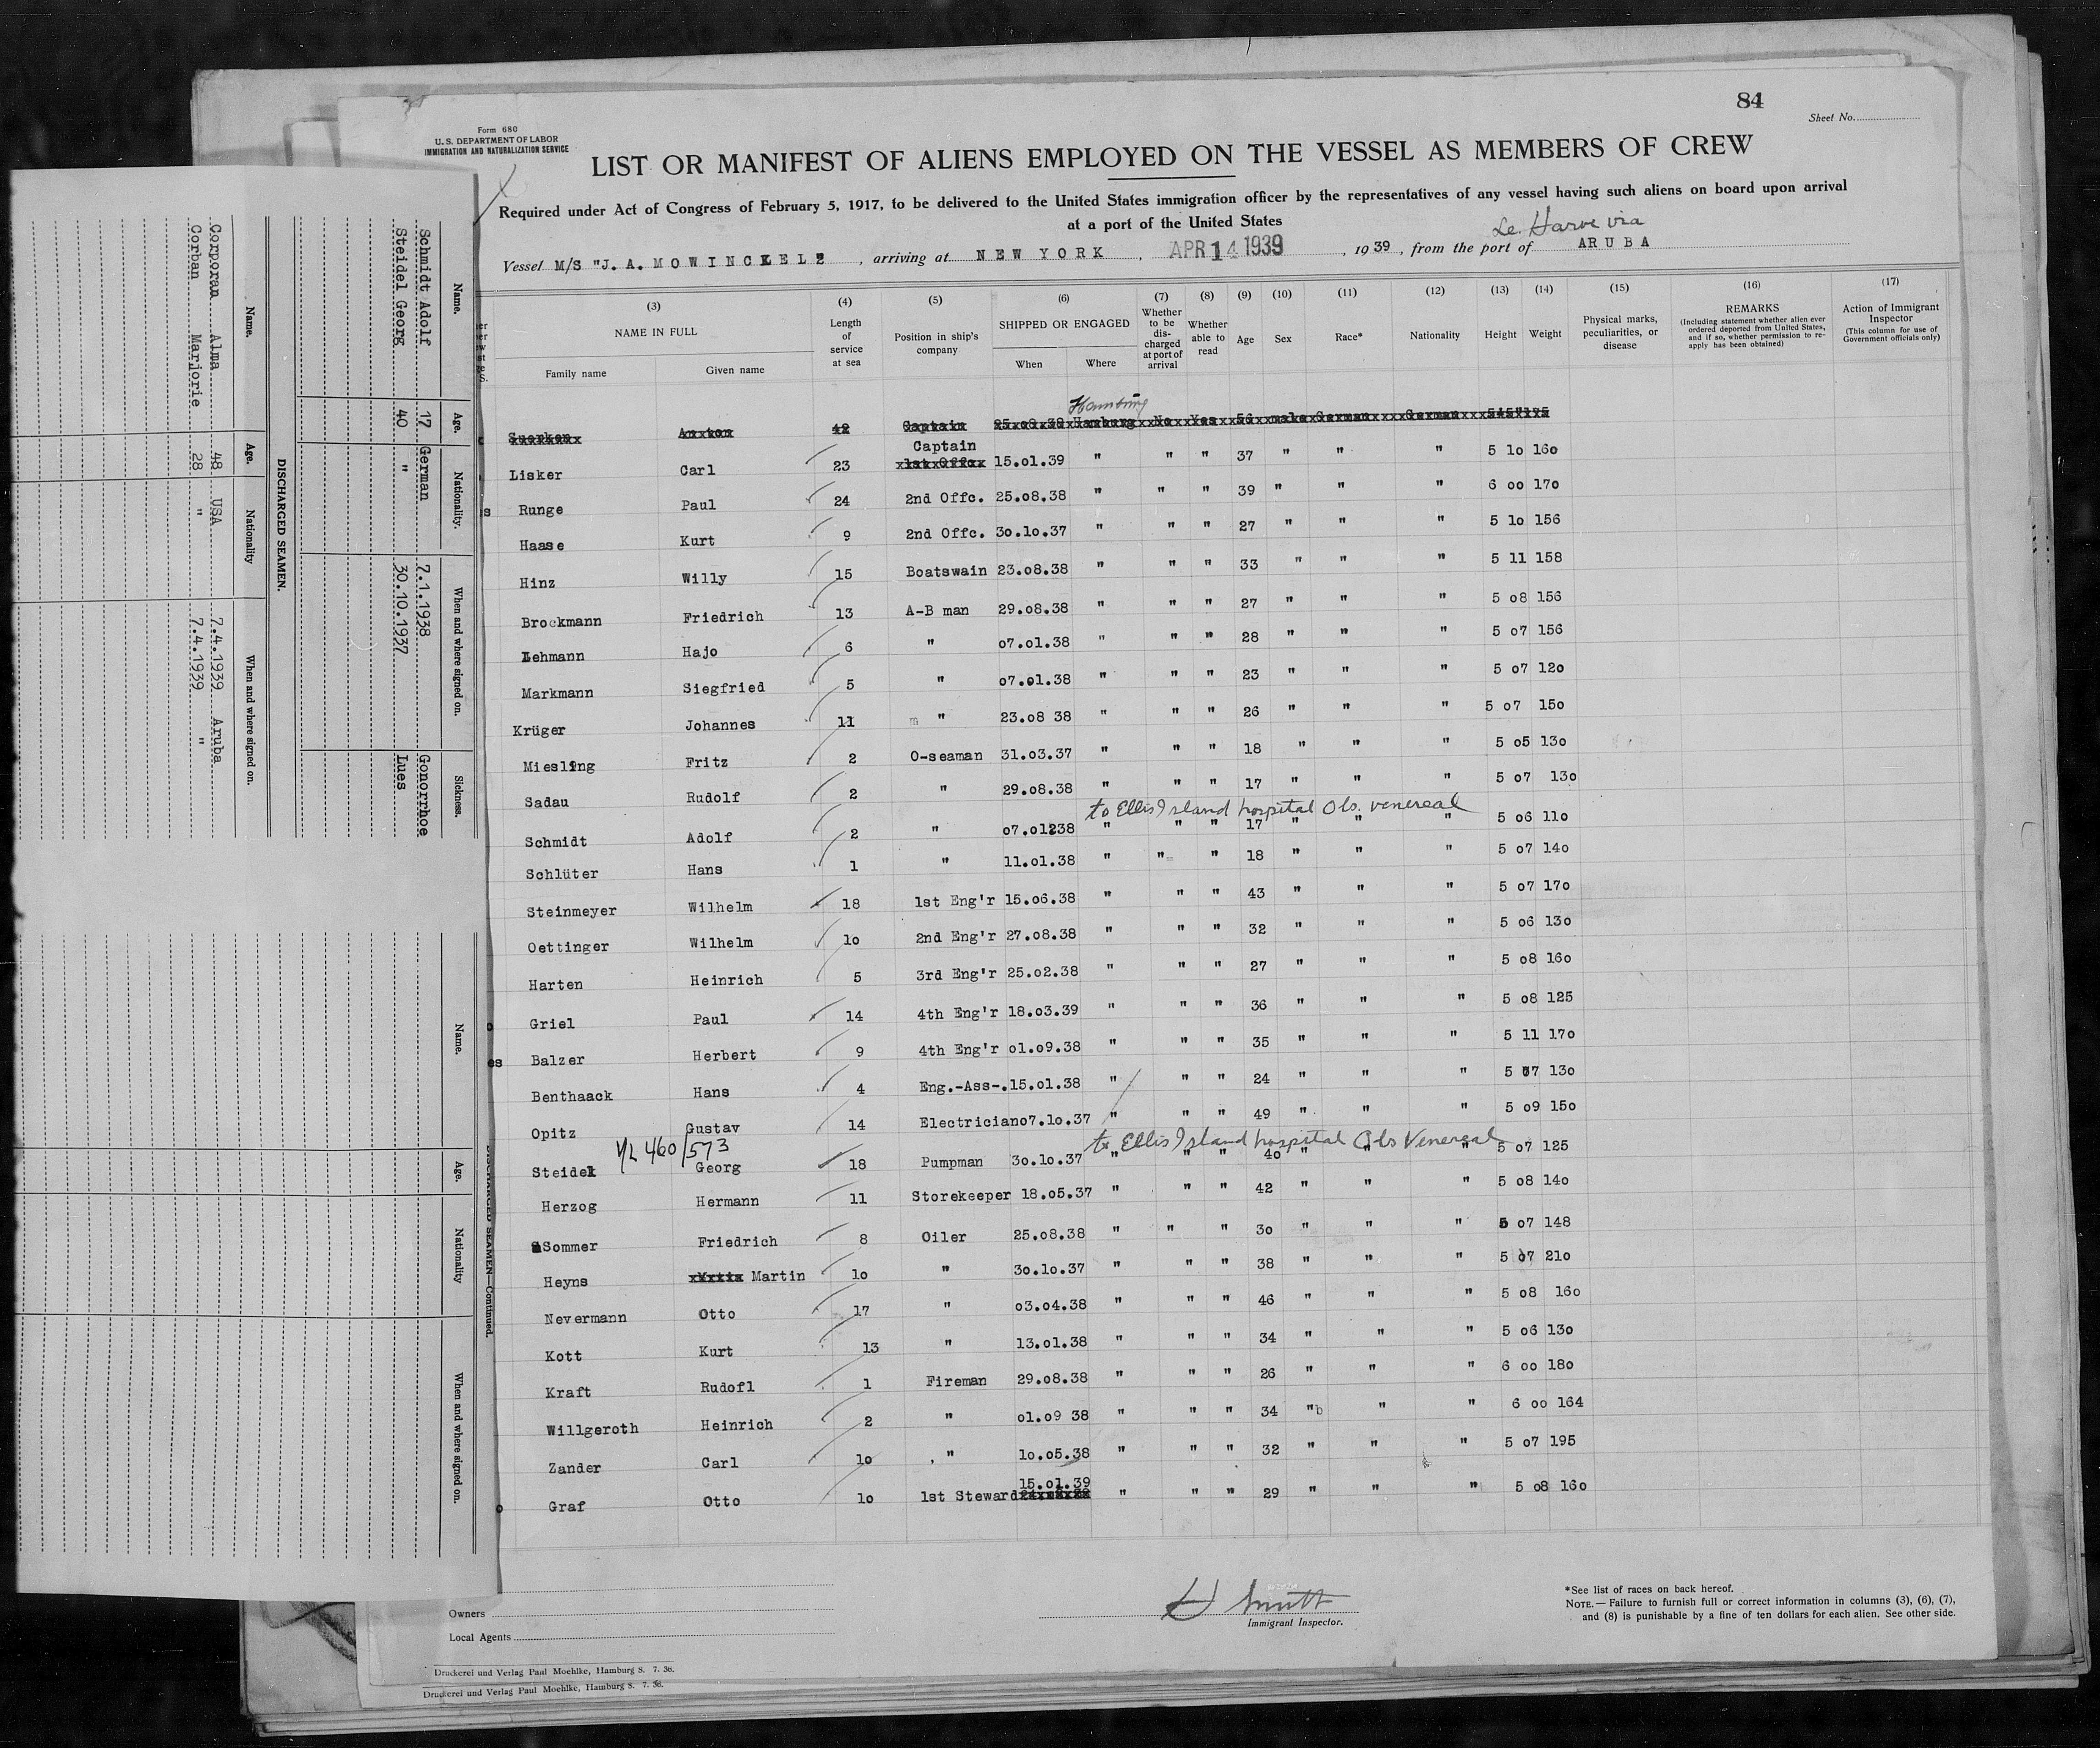 84
Form 680
U. S. DEPARTMENT OF LABOR
IMMIGRATION AND NATURALIZATION SERVICE
Sheet No.
LIST OR MANIFEST OF ALIENS EMPLOYED ON THE VESSEL AS MEMBERS OF CREW
Required under Act of Congress of February 5, 1917, to be delivered to the United States immigration officer by the representatives of any vessel having such aliens on board upon arrival
at a port of the United States
Le. Harve via
Vessel M/S "J. A. MOWINCKEL" , arriving at NEW YORK , APR 14 1939 , 1939 , from the port of ARUBA
(3) (4) (5) (6) (7) (8) (9) (10) (11) (12) (13) (14) (15) (16) (17)
NAME IN FULL
Family name
Given name
Length of service at sea
Position in ship's company
SHIPPED OR ENGAGED
When
Where
Whether to be discharged at port of arrival
Whether able to read
Age
Sex
Race*
Nationality
Height
Weight
Physical marks, peculiarities, or disease
REMARKS
(Including statement whether alien ever ordered deported from United States, and if so, whether permission to reapply has been obtained)
Action of Immigrant Inspector
(This column for use of Government officials only)
Hamburg
Suerken Anton 42 Captain 25.08.38 Hamburg No Yes 56 male German German
Captain
Lisker Carl 23 1st Offc. 15.01.39 " " " 37 " " " 5 10 160
Runge Paul 24 2nd Offc. 25.08.38 " " " 39 " " " 6 00 170
Haase Kurt 9 2nd Offc. 30.10.37 " " " 27 " " " 5 10 156
Hinz Willy 15 Boatswain 23.08.38 " " " 33 " " " 5 11 158
Brockmann Friedrich 13 A-B man 29.08.38 " " " 27 " " " 5 08 156
Lehmann Hajo 6 " 07.01.38 " " " 28 " " " 5 07 156
Markmann Siegfried 5 " 07.01.38 " " " 23 " " " 5 07 120
Krüger Johannes 11 " 23.08 38 " " " 26 " " " 5 07 150
Miesling Fritz 2 O-seaman 31.03.37 " " " 18 " " " 5 05 130
Sadau Rudolf 2 " 29.08.38 " " " 17 " " " 5 07 130
to Ellis Island hospital Obs. venereal
Schmidt Adolf 2 " 07.01238 " " " 17 " " " 5 06 110
Schlüter Hans 1 " 11.01.38 " " " 18 " " " 5 07 140
Steinmeyer Wilhelm 18 1st Eng'r 15.06.38 " " " 43 " " " 5 07 170
Oettinger Wilhelm 10 2nd Eng'r 27.08.38 " " " 32 " " " 5 06 130
Harten Heinrich 5 3rd Eng'r 25.02.38 " " " 27 " " " 5 08 160
Griel Paul 14 4th Eng'r 18.03.39 " " " 36 " " " 5 08 125
Balzer Herbert 9 4th Eng'r 01.09.38 " " " 35 " " " 5 11 170
Benthaack Hans 4 Eng.-Ass-. 15.01.38 " " " 24 " " " 5 07 130
Opitz Gustav 14 Electrician 07.10.37 " " " 49 " " " 5 09 150
460/573 to Ellis Island hospital Obs Venereal
Steidel Georg 18 Pumpman 30.10.37 " " " 40 " " " 5 07 125
Herzog Hermann 11 Storekeeper 18.05.37 " " " 42 " " " 5 08 140
Sommer Friedrich 8 Oiler 25.08.38 " " " 30 " " " 5 07 148
Heyns Martin 10 " 30.10.37 " " " 38 " " " 5 07 210
Nevermann Otto 17 " 03.04.38 " " " 46 " " " 5 08 160
Kott Kurt 13 " 13.01.38 " " " 34 " " " 5 06 130
Kraft Rudofl 1 Fireman 29.08.38 " " " 26 " " " 6 00 180
Willgeroth Heinrich 2 " 01.09 38 " " " 34 "b " " 6 00 164
Zander Carl 10 " 10.05.38 " " " 32 " " " 5 07 195
15.01.39
Graf Otto 10 1st Steward " " " 29 " " " 5 08 160
H Smith
Immigrant Inspector.
Owners
Local Agents
*See list of races on back hereof.
NOTE.— Failure to furnish full or correct information in columns (3), (6), (7),
and (8) is punishable by a fine of ten dollars for each alien. See other side.
Druckerei und Verlag Paul Moehlke, Hamburg 8. 7. 36.
Druckerei und Verlag Paul Moehlke, Hamburg 8. 7. 36.
Name. Age. Nationality. When and where signed on. Sickness.
Schmidt Adolf 17 German 7.1.1938 Gonorrhoe
Steidel Georg 40 " 30.10.1937 Lues
DISCHARGED SEAMEN.
Name. Age. Nationality When and where signed on.
Corporan Alma 48 USA 7.4.1939 Aruba
Corban Marjorie 28 " 7.4.1939 "
DISCHARGED SEAMEN—Continued.
Name. Age. Nationality When and where signed on.